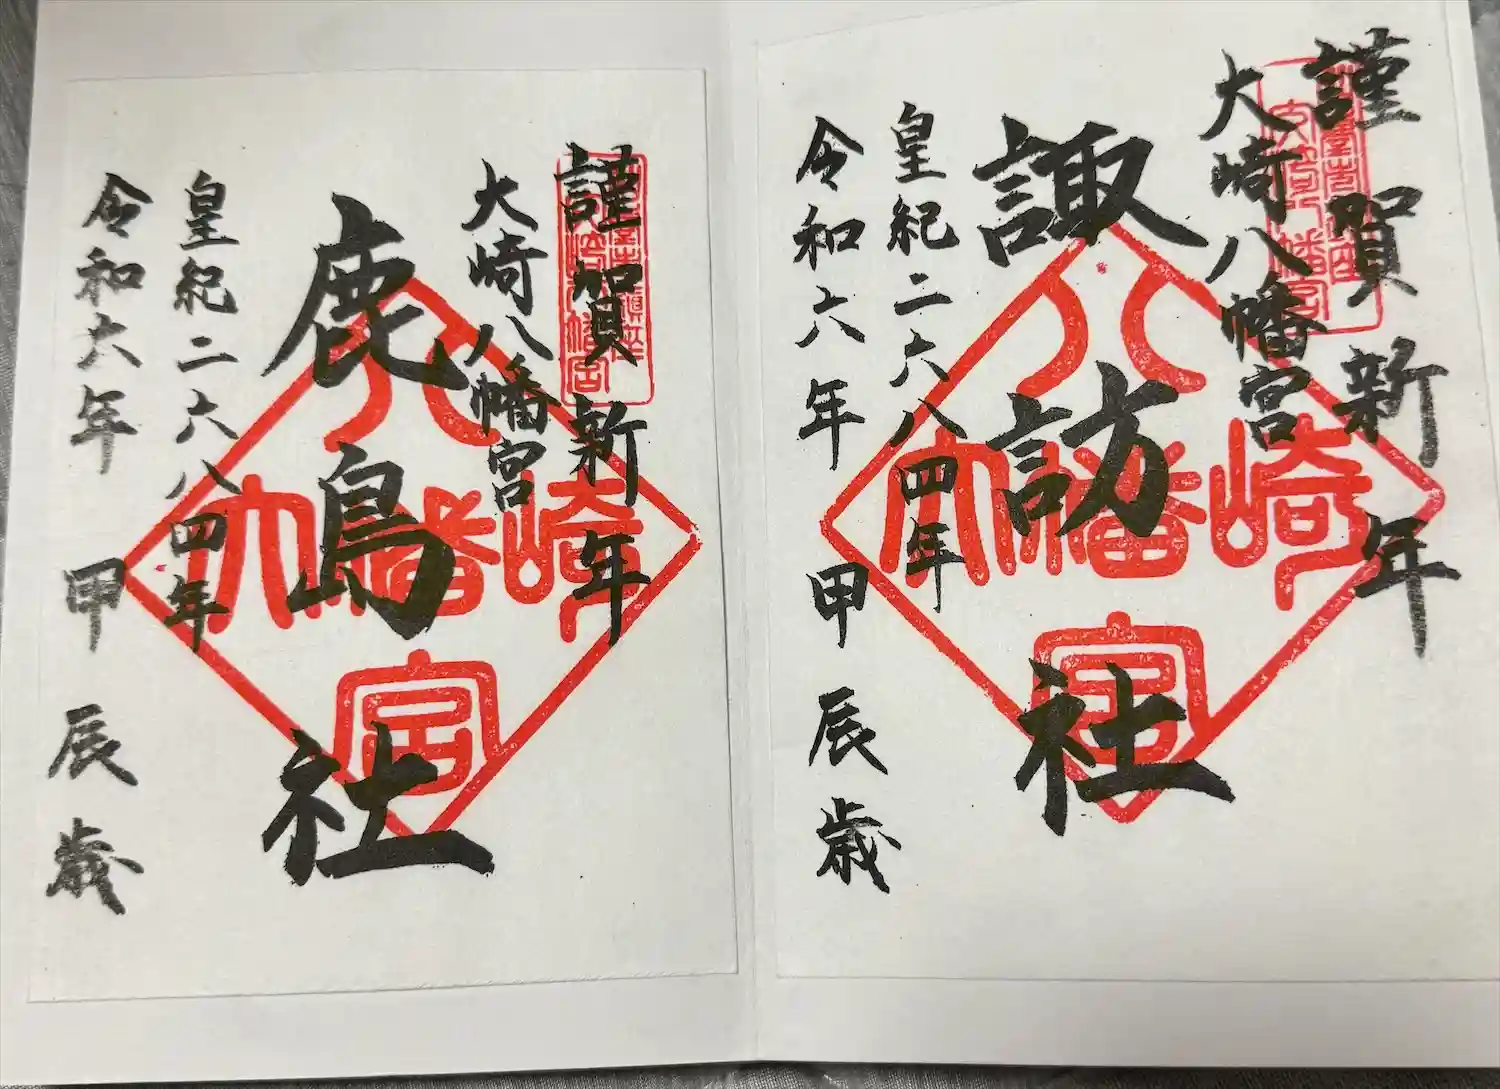 謹賀新年
大崎八幡宮
諏訪社
皇紀二六八四年
令和六年 甲辰歳
八
大幡崎
宮
謹賀新年
大崎八幡宮
鹿島社
皇紀二六八四年
令和六年 甲辰歳
八
大幡崎
宮